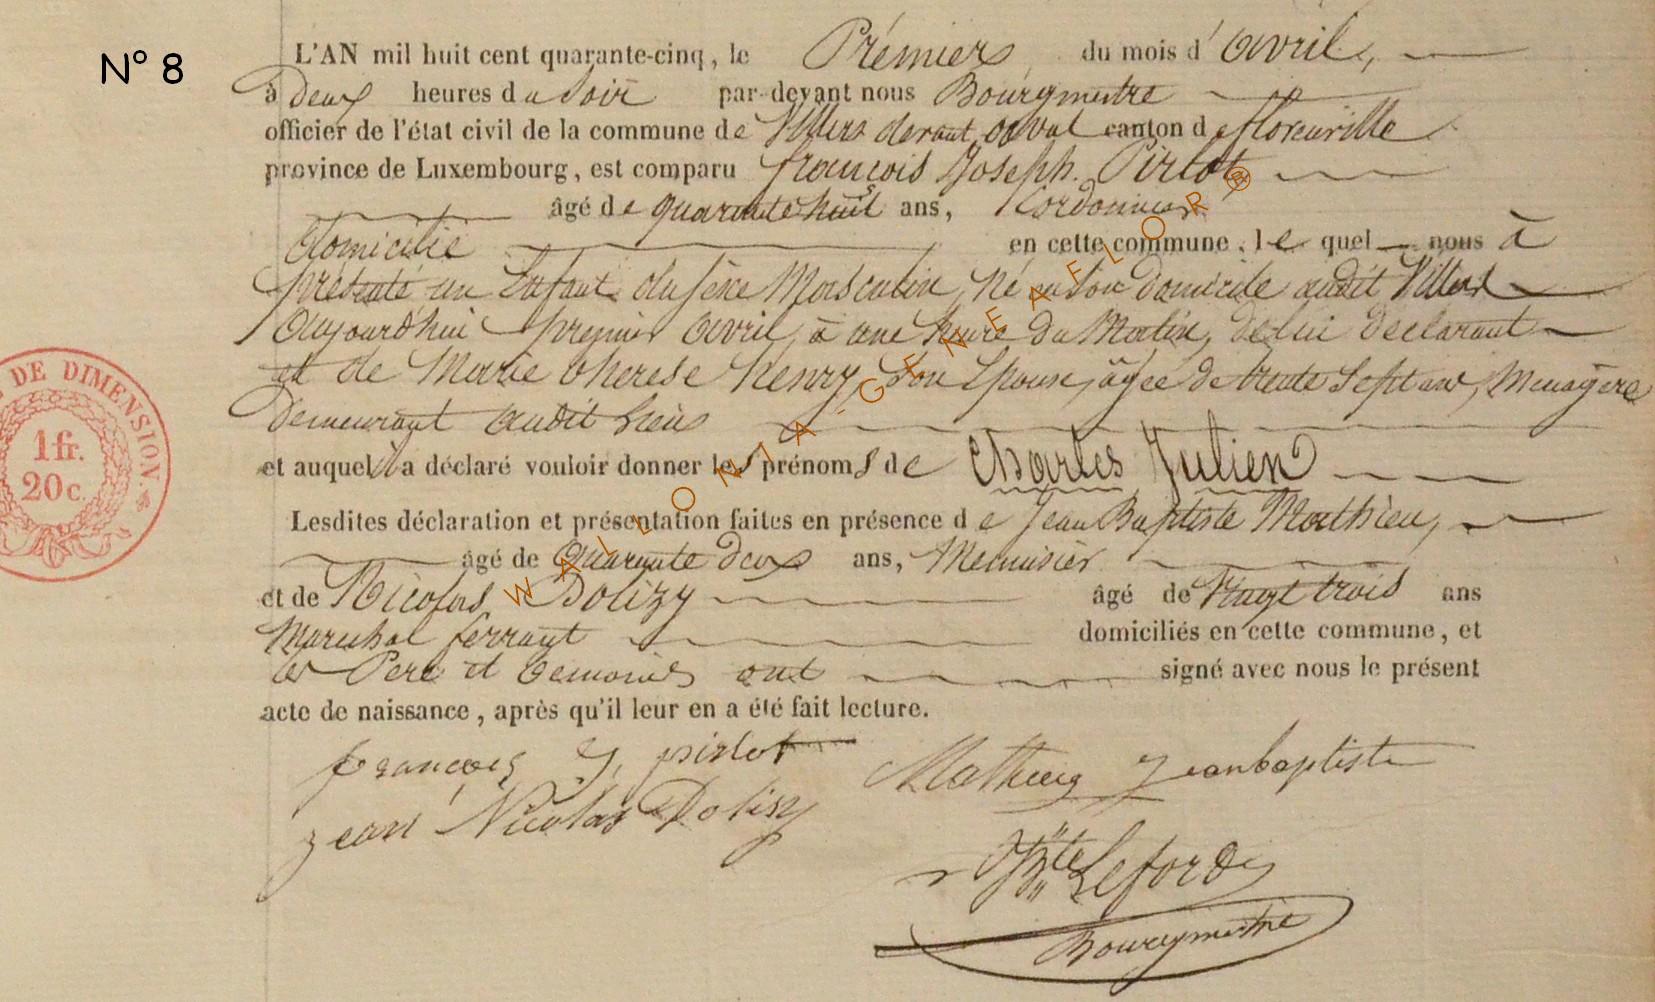 N° 8
L'AN mil huit cent quarante-cinq, le Prémier, du mois d' Avril,
à Deux heures du Soir par-devant nous Bourgmestre
officier de l'état civil de la commune de Villers devant orval canton de florenville
province de Luxembourg, est comparu françois Joseph. Pirlot
âgé de quarante huit ans, Cordonnier
Domicilié en cette commune, lequel nous à
présenté un Enfant du sexe Masculin, Né en son domicile audit Villers
Aujourdhui premier Avril, à une heure du Matin, de lui déclarant
et de Marie therese henry, Son Epouse, agée de trente Sept ans, Menagère
demeurant audit lieu
et auquel il a déclaré vouloir donner les prénoms de Charles Julien
Lesdites déclaration et présentation faites en présence de Jean Baptiste Mathieu,
âgé de Quarante deux ans, Menuisier
et de Nicolas Dolizy âgé de Vingt trois ans
Marechal ferrant domiciliés en cette commune, et
les Pere et temoins ont signé avec nous le présent
acte de naissance, après qu'il leur en a été fait lecture.
françois J. pirlot Mathieu Jeanbaptiste
jean Nicolas Dolisy
JBte Lefords
Bourgmestre
DE DIMENSION.
1 fr.
20 c.
WALLONIA-GENEAFLOR®